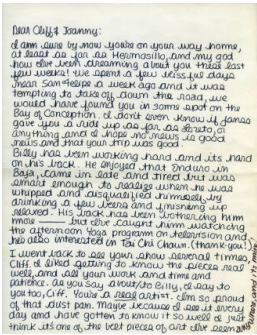 Dear Cliff & Joanny:
I am sure by now you're on your way home,
at least as far as Hermosillo, and my god
how I've been dreaming about you this last
few weeks! We spent a few blissful days
near San Felipe a week ago and it was
tempting to take off down the road, we
would have found you in some spot on the
Bay of Conception. I don't even know if James
gave you a ride up as far as Loreto, or
anything and I hope no news is good
news and that your trip was good.
Billy has been working hard and its hard
on his back. He enjoyed that Enduro in
Baja, came in late and tired but was
smart enough to realize when he was
whipped and disqualified himself by
drinking a few beers and finishing up
relaxed. His back has been bothering him
more — but I've caught him watching
the afternoon Yoga program on television and
he's also interested in Tai Chi Chuan. (thank you!)
I went back to see your show several times,
Cliff. I liked getting to know the pieces real
well, and all your work and time and
patience. As you say about/to Billy, I say to
you too, Cliff. You're a real artist. I'm so proud
of that dust pan. Maybe because I see it every
day and have gotten to know it so well I just
think its one of the best pieces of art I've seen